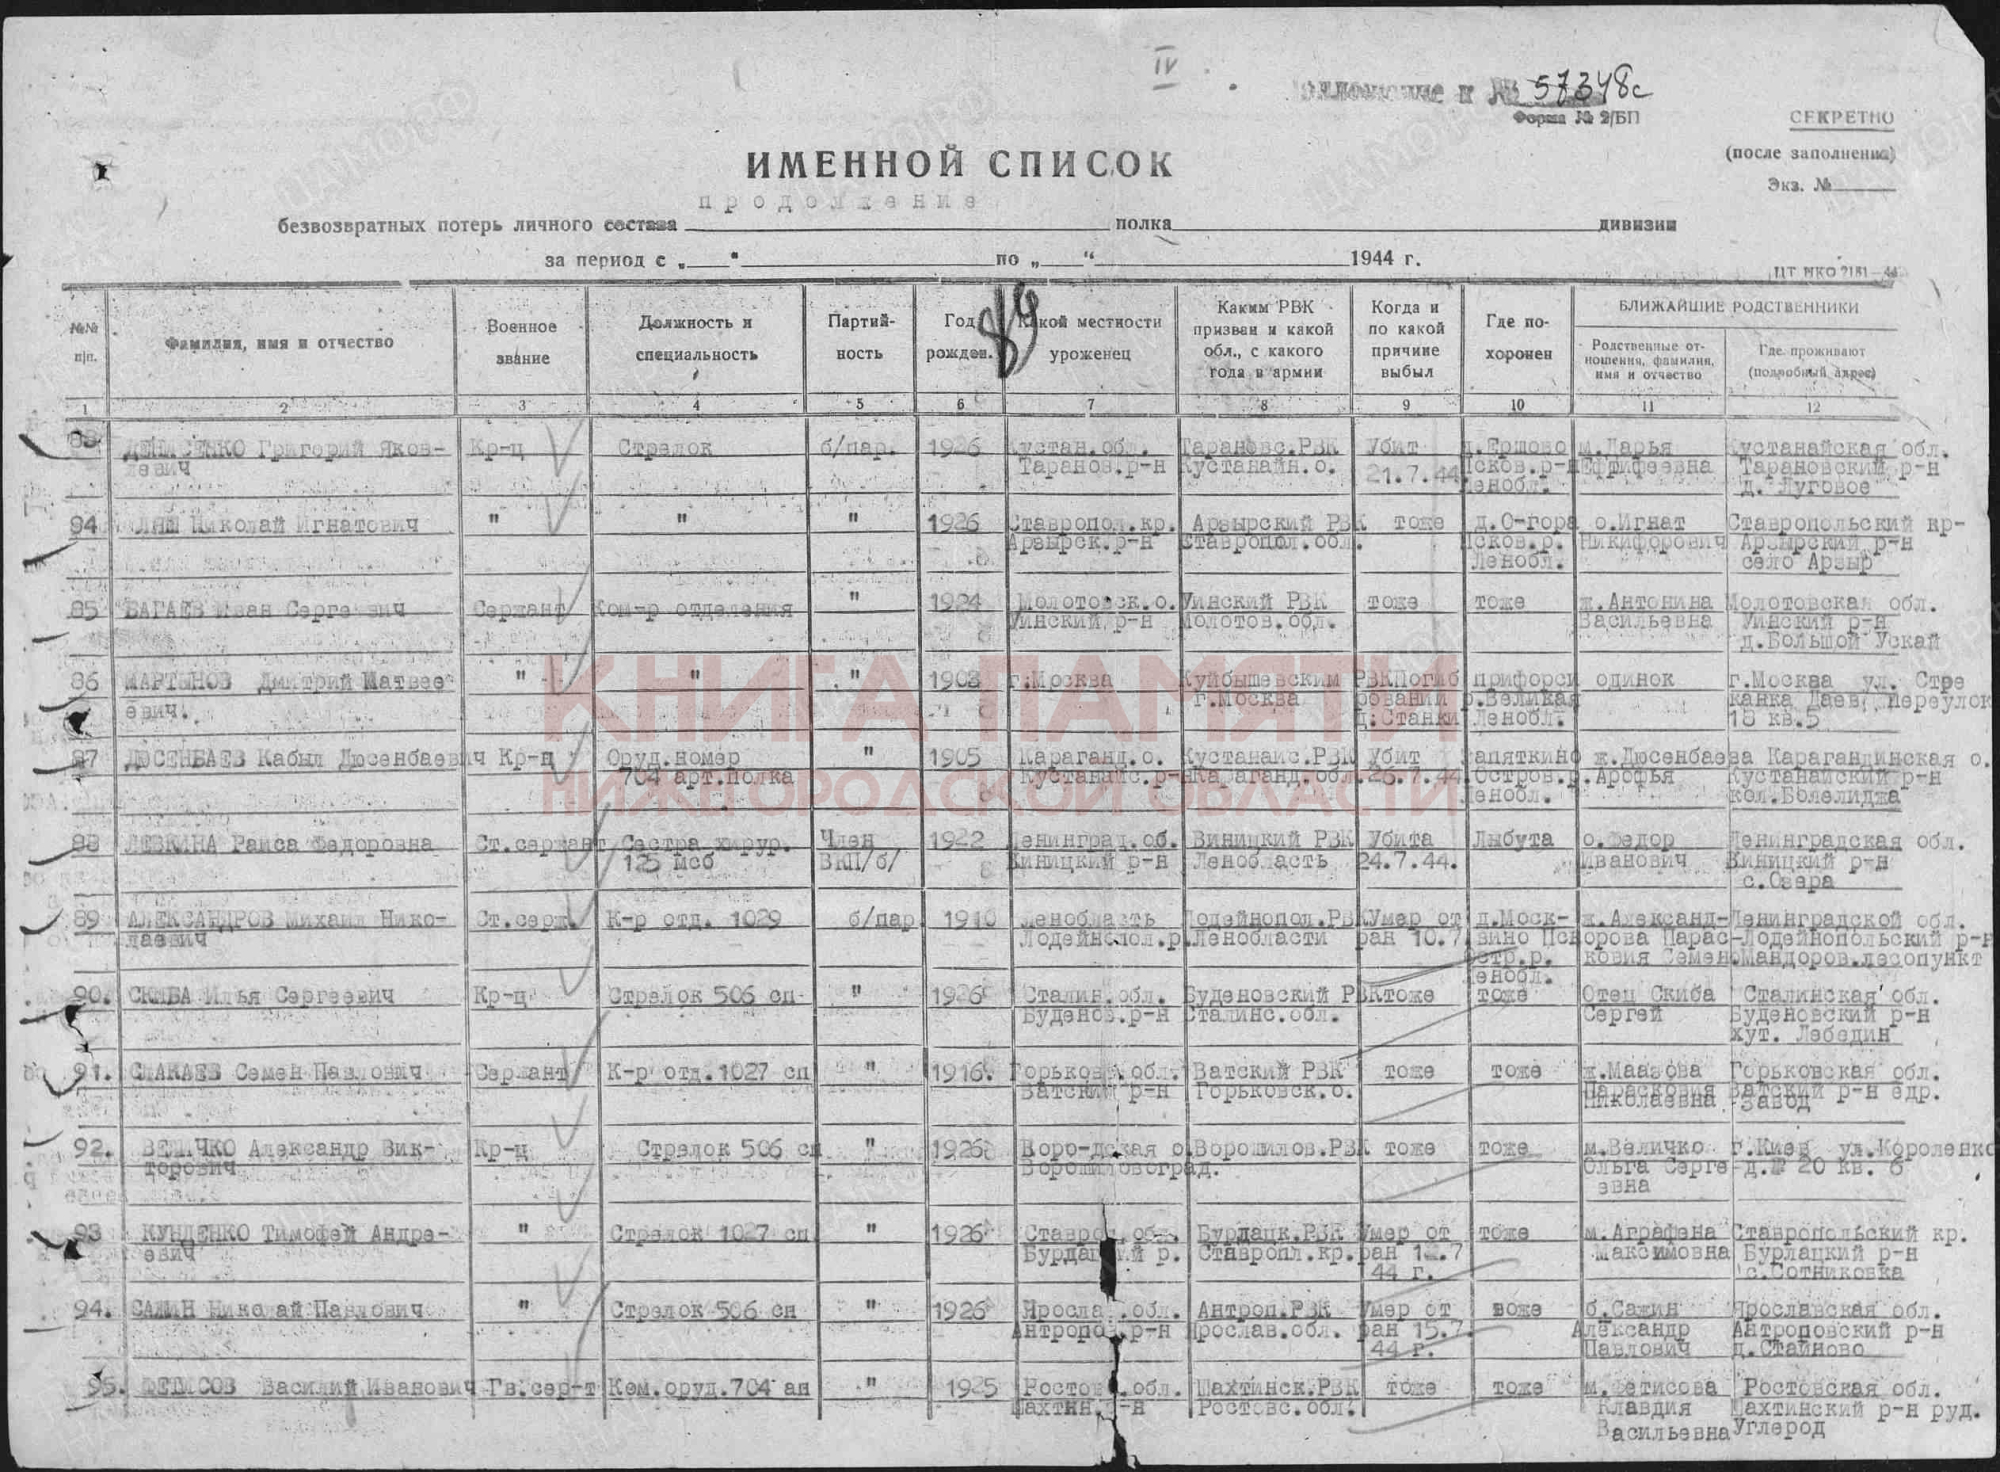 IV
к № 57348с
Форма № 2/БП
СЕКРЕТНО
(после заполнения)
Экз. №
ИМЕННОЙ СПИСОК
продолжение
безвозвратных потерь личного состава полка дивизии
за период с „ “ по „ “ 1944 г.
84
№№ п/п.
Фамилия, имя и отчество
Военное звание
Должность и специальность
Партий-ность
Год рожден.
Какой местности уроженец
Каким РВК призван и какой обл., с какого года в армии
Когда и по какой причине выбыл
Где по-хоронен
БЛИЖАЙШИЕ РОДСТВЕННИКИ
Родственные от-ношения, фамилия, имя и отчество
Где проживают (подробный адрес)
1 2 3 4 5 6 7 8 9 10 11 12
83 ДЕНИСЕНКО Григорий Яков- Кр-ц Стрелок б/пар. 1926 Кустан.обл. Тарановс.РВК Убит д.Ершово м.Дарья Кустанайская обл.
левич Таранов.р-н Кустанайн.о. 21.7.44 Псков.р-н Ефтифеевна Тарановский р-н
Ленобл. д. Луговое
84 Николай Игнатович " " " 1926 Ставропол.кр. Арзырский РВК тоже д.О-гора о.Игнат Ставропольский кр-
Арзырск.р-н Ставропол.обл. Псков.р. Никифорович Арзырский р-н
Ленобл. село Арзыр
85 БАГАЕВ Иван Сергеевич Сержант Ком-р отделения " 1924 Молотовск.о. Уинский РВК тоже тоже ж.Антонина Молотовская обл.
Уинский р-н Молотов.обл. Васильевна Уинский р-н
д.Большой Ускай
86 МАРТЫНОВ Дмитрий Матвее " " " 1908 г.Москва Куйбышевским РВК Погиб прифорси одинок г.Москва ул. Стре
евич. г.Москва ровании р.Великая Даев, переулок
д.Станки Ленобл. 18 кв.5
87 ДЮСЕНБАЕВ Кабыл Дюсенбаевич Кр-ц Оруд.номер " 1905 Караганд.о. Кустанаис.РВК Убит Запяткино ж.Дюсенбаева Карагандинская о.
704 арт.полка Кустанайс.р-н Караганд.об. 26.7.44 Остров.р. Арофья Кустанайский р-н
Ленобл. кол.Болелиджа
88 ЛЕВКИНА Раиса Федоровна Ст.сержант Сестра хирур. Член 1922 Ленинград.об. Виницкий РВК Убита Лыбута о.Федор Ленинградская обл.
125 мсб ВКП/б/ Виницкий р-н Ленобласть 24.7.44. Иванович Виницкий р-н
с.Озера
89 АЛЕКСАНДРОВ Михаил Нико- Ст.серж. К-р отд. 1029 б/пар 1910 Ленобласть Лодейнопол.РВК Умер от д.Моск- ж.Александ- Ленинградской обл.
лаевич Лодейнопол.р. Ленобласти ран 10.7 вино Пск орова Парас- Лодейнопольский р-н
стр.р. ковия Семен. Мандоров.лесопункт
Ленобл.
90. СКИБА Илья Сергеевич Кр-ц Стрелок 506 сп " 1926 Сталин.обл. Буденовский РВК тоже тоже Отец Скиба Сталинская обл.
Буденов.р-н Сталинс.обл. Сергей Буденовский р-н
хут. Лебедин
91. Семен Павлович Сержант К-р отд.1027 сп " 1916. Горьковя.обл. Ватский РВК тоже тоже ж.Маазова Горьковская обл.
Ватский р-н Горьковск.о. Парасковия Ватский р-н едр.
Николаевна Завод
92. ВЕЛИЧКО Александр Вик- Кр-ц Стрелок 506 сп " 1926 Воро-дская о. Ворошилов.РВК тоже тоже м.Величко г.Киев ул.Короленко
торович Ворошиловоград. Ольга Серге- д.№ 20 кв. 6
евна
93 КУНДЕНКО Тимофей Андре- " Стрелок 1027 сп " 1926 Ставроп обл. Бурлацк.РВК Умер от тоже м.Аграфена Ставропольский кр.
евич Бурлацкий р. Ставропл.кр. ран 12.7 Максимовна Бурлацкий р-н
44 г. с.Сотниковка
94. САЖИН Николай Павлович " Стрелок 506 сп " 1926 Яросла .обл. Антроп.РВК Умер от тоже б.Сажин Ярославская обл.
Антропов.р-н Ярослав.обл. ран 15.7. Александр Антроповский р-н
44 г. Павлович д.Стайново
95. ФЕТИСОВ Василий Иванович Гв.сер-т Ком.оруд.704 ап " 1925 Ростов .обл. Шахтинск.РВК тоже тоже м.Фетисова Ростовская обл.
Шахтин.р-н Ростовс.обл. Клавдия Шахтинский р-н руд.
Васильевна Углерод
КНИГА ПАМЯТИ
НИЖЕГОРОДСКОЙ ОБЛАСТИ